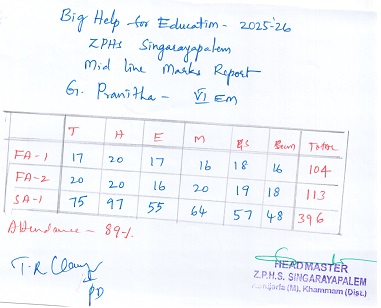 Big Help for Education - 2025-26
ZPHS Singarayapalem
Mid line Marks Report
G. Pranitha - VI EM
T H E M Total
FA-1 17 20 17 16 18 16 104
FA-2 20 20 16 20 19 18 113
SA-1 75 97 55 64 57 48 396
Attendance - 89%
HEAD MASTER
Z.P.H.S. SINGARAYAPALEM
(M), Khammam (Dist.)